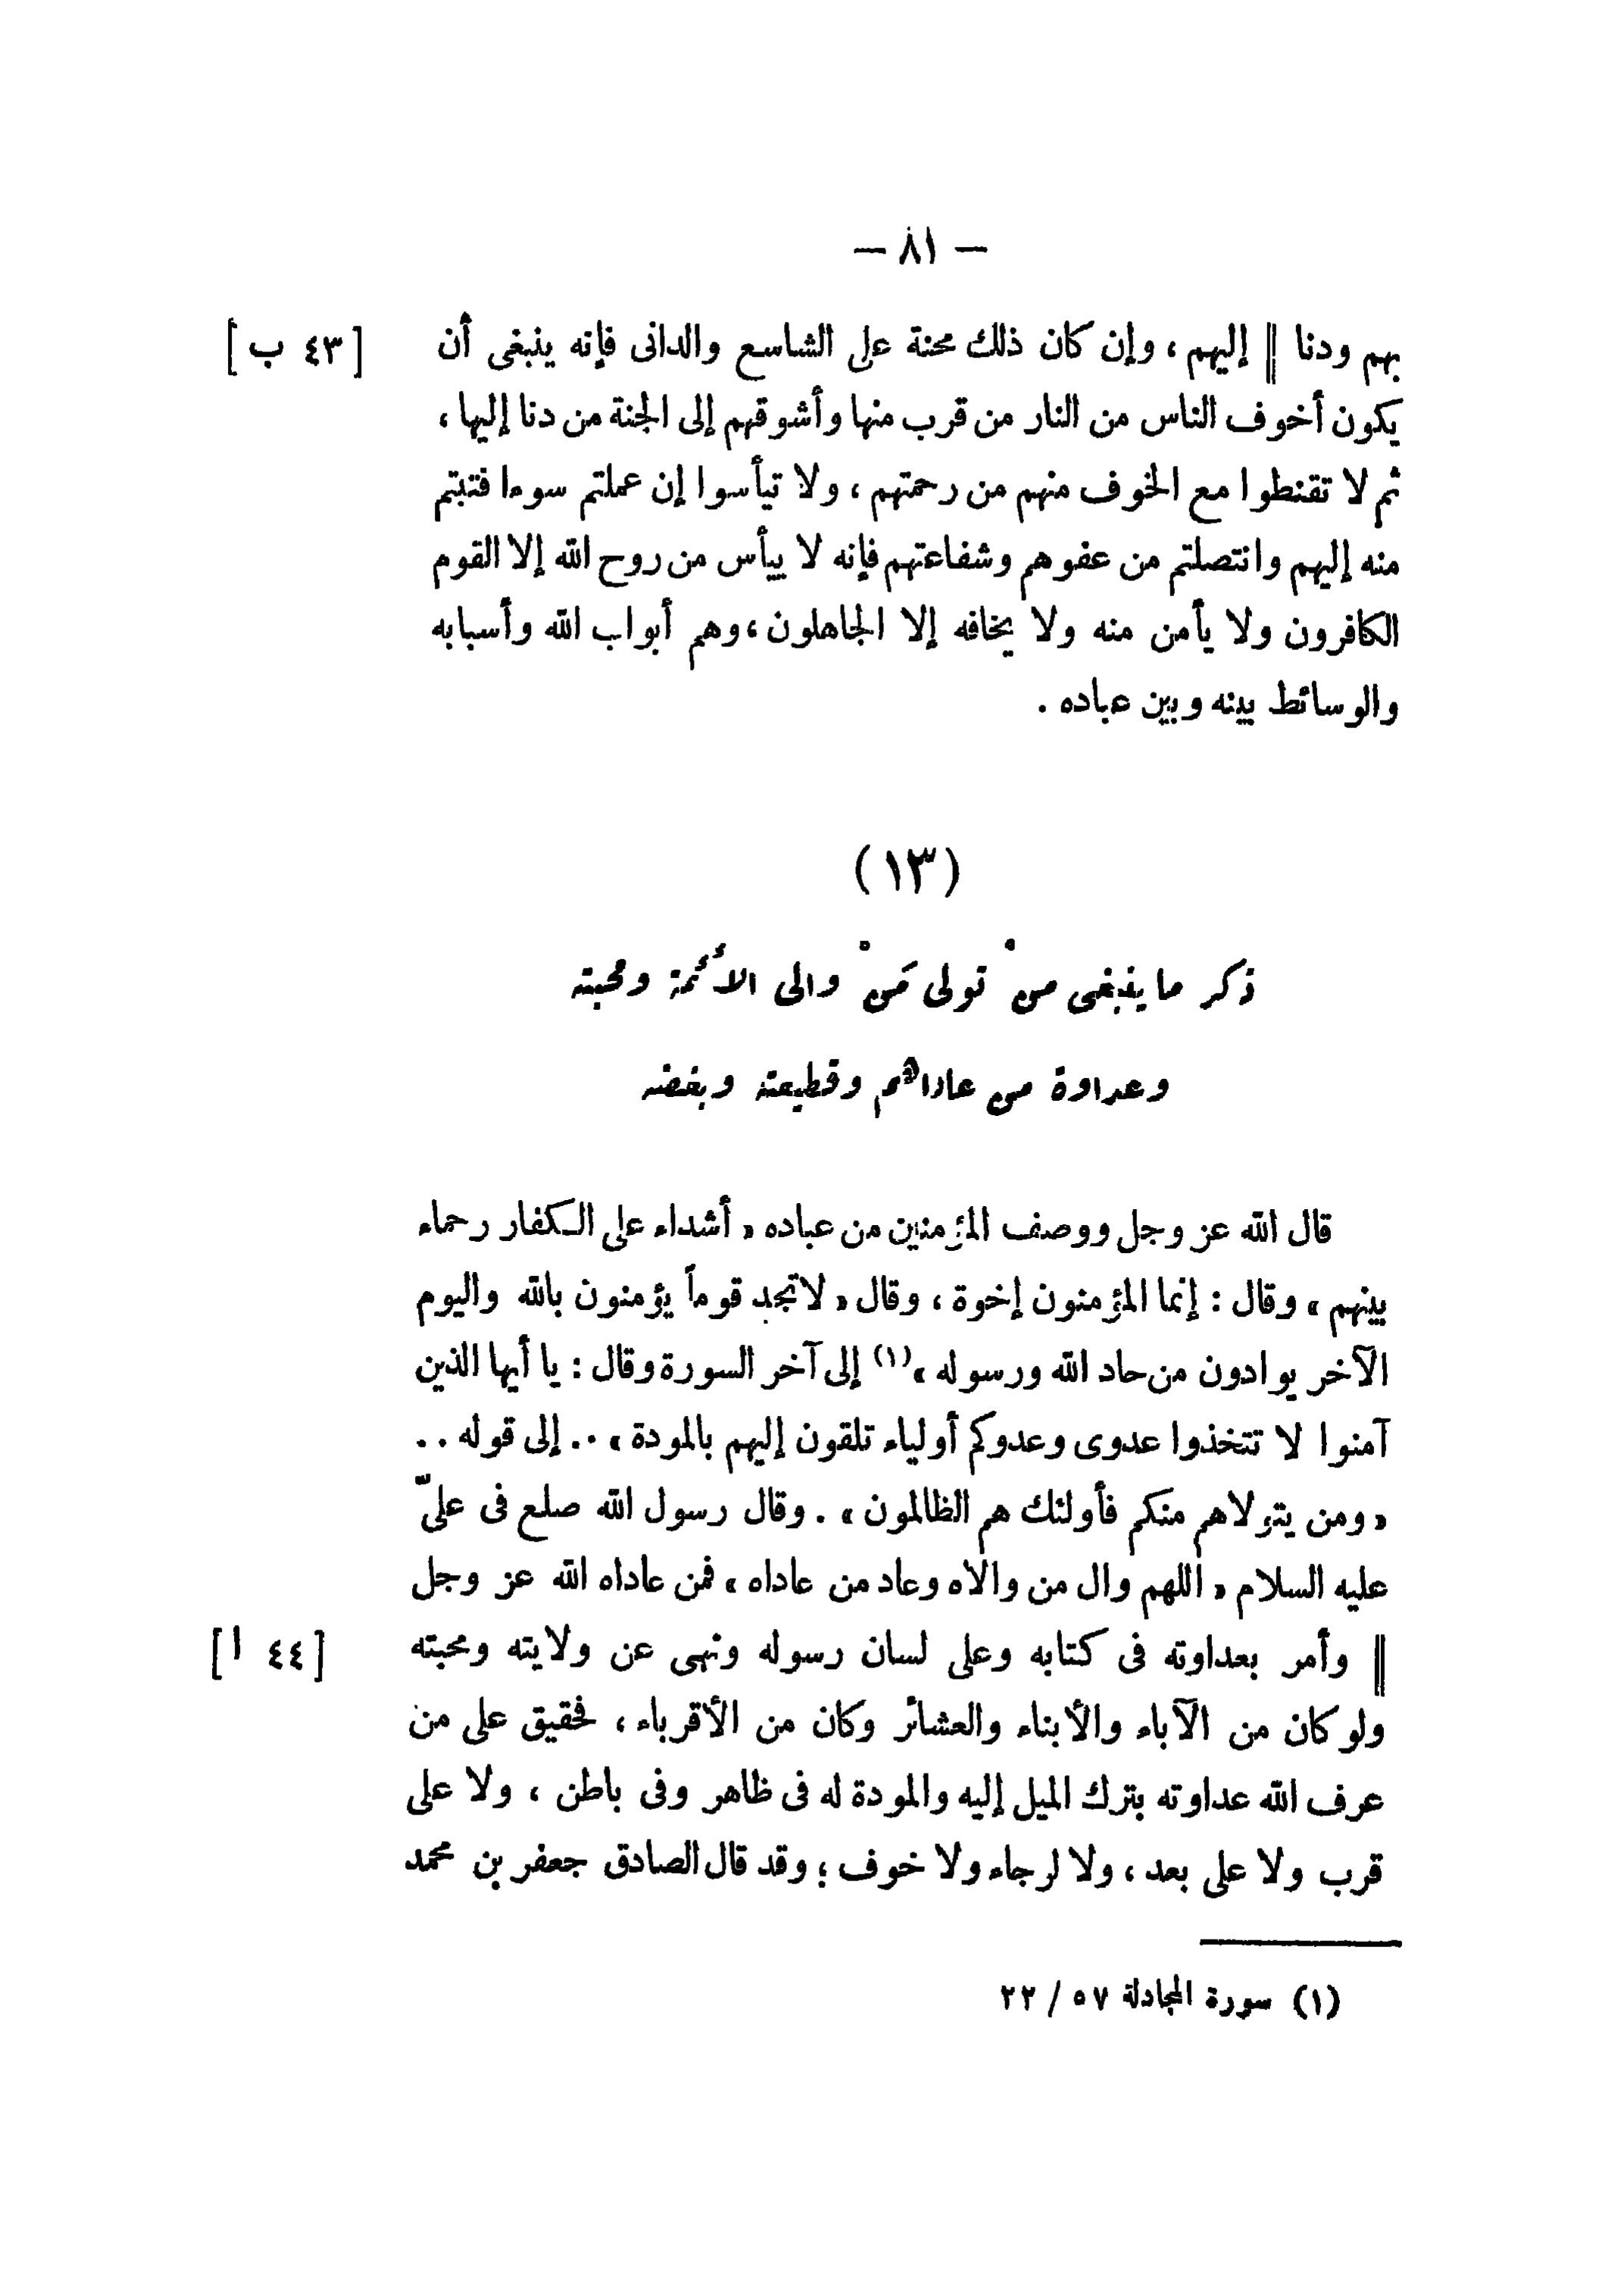 — ٨١ —
بهم ودنا || إليهم ، وإن كان ذلك محنة على الشاسع والدانى فإنه ينبغى أن [ ٤٣ ب ]
يكون أخوف الناس من النار من قرب منها وأشوقهم إلى الجنة من دنا إليها ،
ثم لا تقنطوا مع الخوف منهم من رحمتهم ، ولا تيأسوا إن عملتم سوءا فتبتم
منه إليهم وانتصلتم من عفوهم وشفاعتهم فإنه لا ييأس من روح الله إلا القوم
الكافرون ولا يأمن منه ولا يخافه إلا الجاهلون ، وهم أبواب الله وأسبابه
والوسائط بينه وبين عباده .
( ١٣ )
ذكر ما ينبغى من تولى مَن والى الأئمة ومحبته
وعداوة من عاداهم وقطيعته وبغضه
قال الله عز وجل ووصف المؤمنين من عباده « أشداء على الكفار رحماء
بينهم » وقال : إنما المؤمنون إخوة ، وقال « لا تجد قوماً يؤمنون بالله واليوم
الآخر يوادون من حاد الله ورسوله »(١) إلى آخر السورة وقال : يا أيها الذين
آمنوا لا تتخذوا عدوى وعدوكم أولياء تلقون إليهم بالمودة » .. إلى قوله . .
« ومن يتولاهم منكم فأولئك هم الظالمون » . وقال رسول الله صلع فى علىّ
عليه السلام « اللهم وال من والاه وعاد من عاداه » فمن عاداه الله عز وجل
|| وأمر بعداوته فى كتابه وعلى لسان رسوله ونهى عن ولايته ومحبته [ ٤٤ ا ]
ولو كان من الآباء والأبناء والعشائر وكان من الأقرباء ، فحقيق على من
عرف الله عداوته بترك الميل إليه والمودة له فى ظاهر وفى باطن ، ولا على
قرب ولا على بعد ، ولا لرجاء ولا خوف ؛ وقد قال الصادق جعفر بن محمد
(١) سورة المجادلة ٥٧ / ٢٢